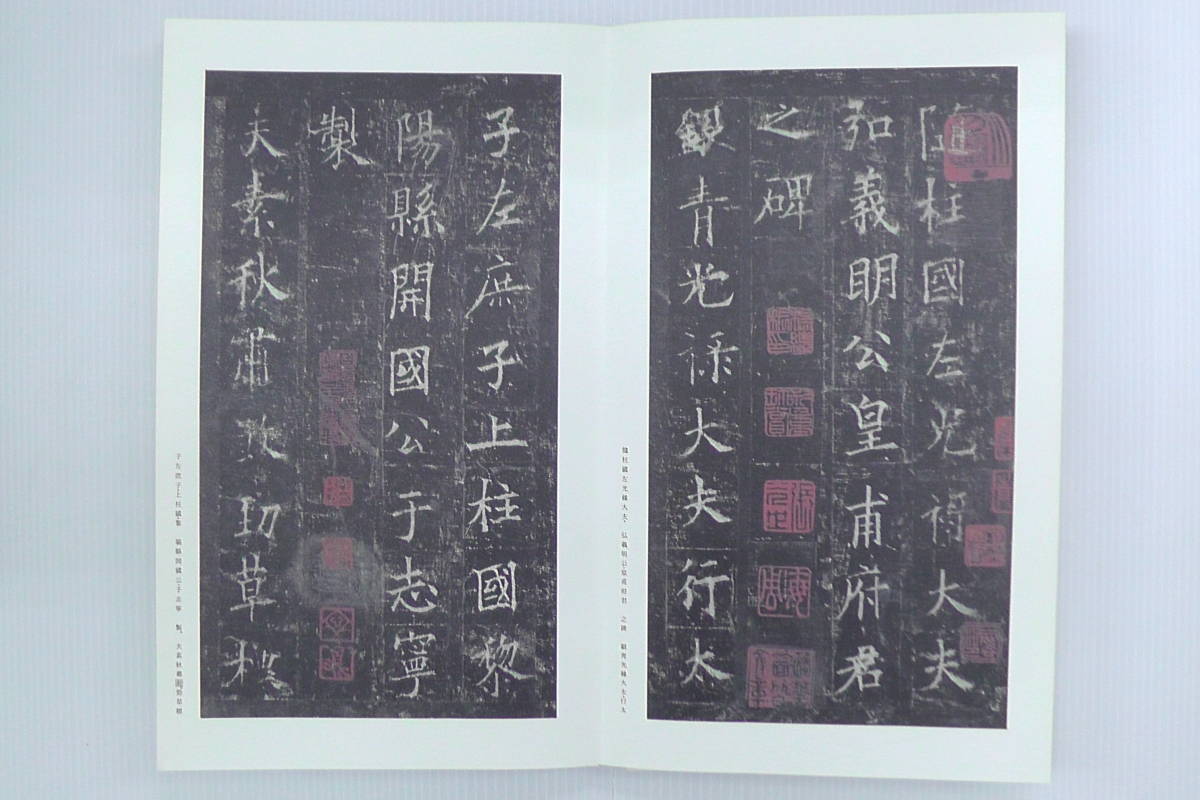 隨柱國左光祿大夫
弘義明公皇甫府君
之碑
銀青光祿大夫行太
子左庶子上柱國黎
陽縣開國公于志寧
製
夫素秋肅煞勁草標
隨柱國左光祿大夫 弘義明公皇甫府君 之碑 銀青光祿大夫行太
子左庶子上柱國黎 陽縣開國公于志寧 製 夫素秋肅煞勁草標